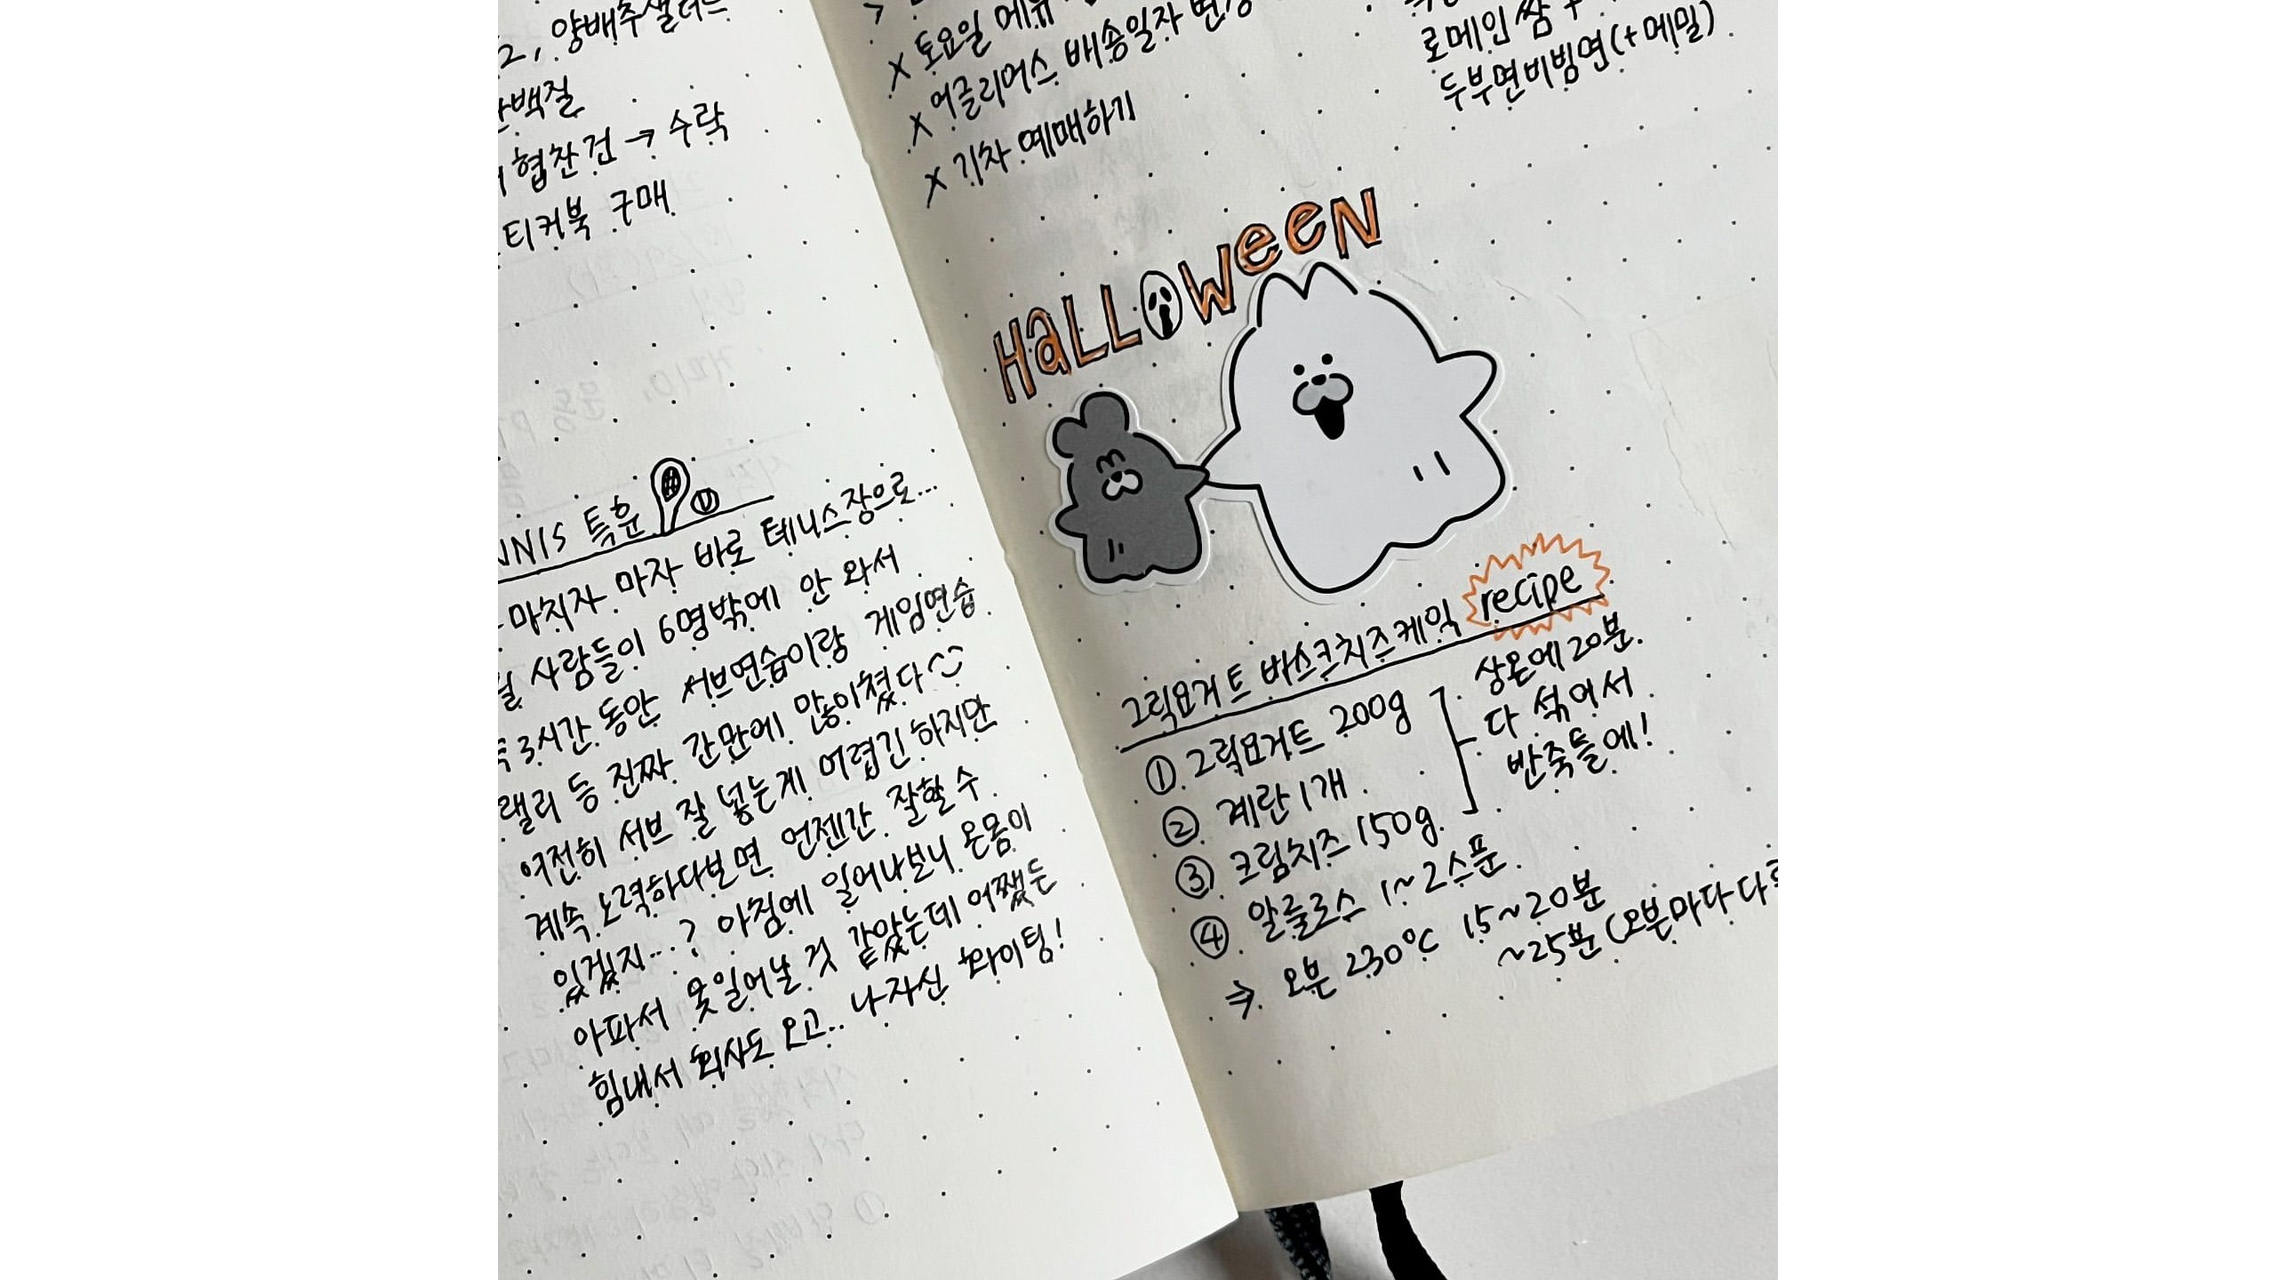 2, 양배추샐러드
단백질
협찬건 → 수락
티커북 구매
NNIS 특훈
마치자 마자 바로 테니스장으로...
사람들이 6명밖에 안 와서
3시간 동안 서브연습이랑 게임연습
랠리 등 진짜 간만에 많이쳤다
여전히 서브 잘 넣는게 어렵긴 하지만
계속 노력하다보면 언젠간 잘할 수
있겠지...? 아침에 일어나보니 온몸이
아파서 못일어날 것 같았는데 어쨌든
힘내서 회사도 오고.. 나자신 화이팅!
x 토요일 메뉴
x 어글리어스 배송일자 변경
x 기차 예매하기
로메인 쌈 +
두부면비빔면(+메밀)
HALLOWEEN
그릭요거트 바스크치즈케익 recipe
① 그릭요거트 200g
② 계란 1개
③ 크림치즈 150g
상온에 20분.
다 섞어서
반죽틀에!
④ 알룰로스 1~2스푼
⇒ 오븐 230°C 15~20분
~25분 (오븐마다 다